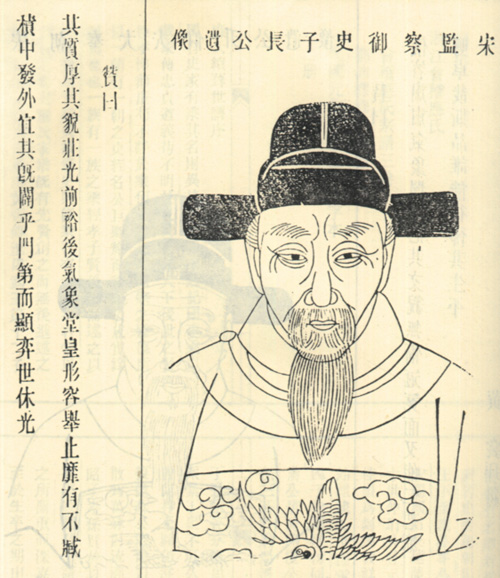 宋監察御史子長公遺像
贊曰
其質厚其貌莊光前裕後氣象堂皇形容舉止靡有不臧
積中發外宜其旣闢乎門第而顯弈世休光